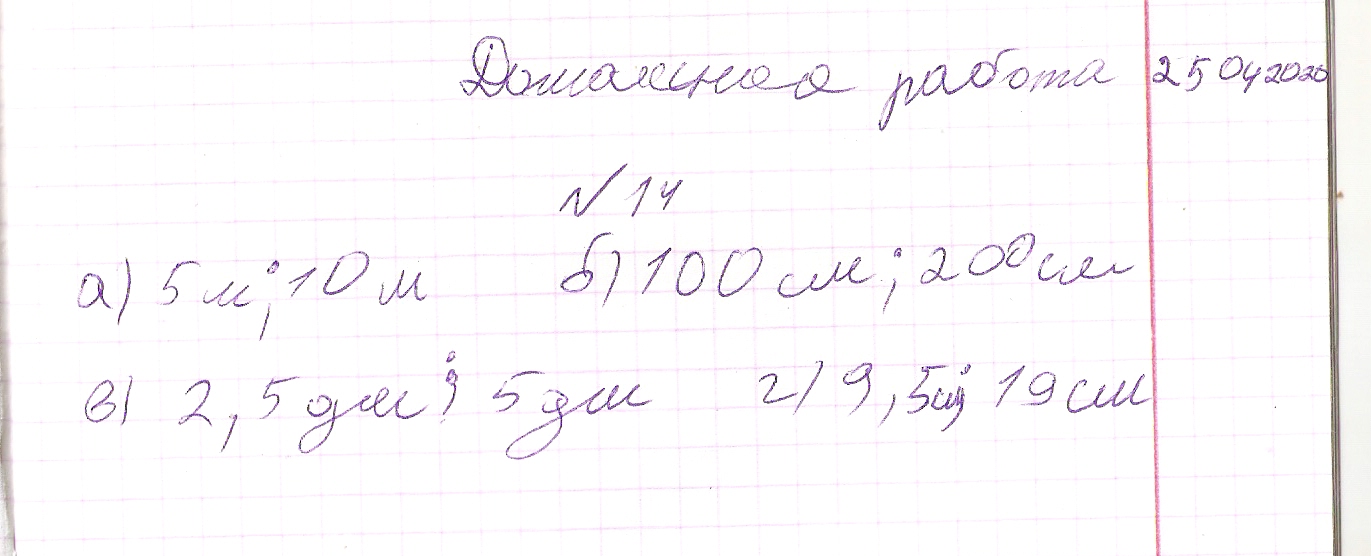 Домашняя работа 25 04 2020
№ 14
а) 5 м; 10 м б) 100 см; 200 см
в) 2,5 дм; 5 дм г) 9,5 см; 19 см